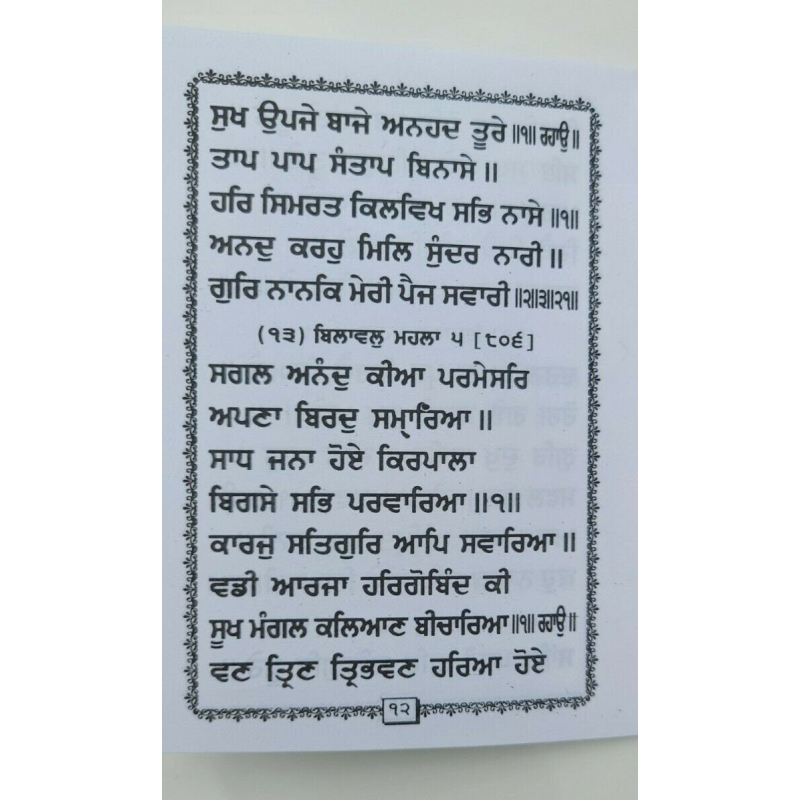 ਸੁਖ ਉਪਜੇ ਬਾਜੇ ਅਨਹਦ ਤੂਰੇ ॥੧॥ ਰਹਾਉ॥
ਤਾਪ ਪਾਪ ਸੰਤਾਪ ਬਿਨਾਸੇ ॥
ਹਰਿ ਸਿਮਰਤ ਕਿਲਵਿਖ ਸਭਿ ਨਾਸੇ ॥੧॥
ਅਨਦੁ ਕਰਹੁ ਮਿਲਿ ਸੁੰਦਰ ਨਾਰੀ ॥
ਗੁਰਿ ਨਾਨਕਿ ਮੇਰੀ ਪੈਜ ਸਵਾਰੀ ॥੨॥੩॥੨੧॥
(੧੩) ਬਿਲਾਵਲੁ ਮਹਲਾ ੫ [੮੦੬]
ਸਗਲ ਅਨੰਦੁ ਕੀਆ ਪਰਮੇਸਰਿ
ਅਪਣਾ ਬਿਰਦੁ ਸਮ੍ਹਾਰਿਆ ॥
ਸਾਧ ਜਨਾ ਹੋਏ ਕਿਰਪਾਲਾ
ਬਿਗਸੇ ਸਭਿ ਪਰਵਾਰਿਆ ॥੧॥
ਕਾਰਜੁ ਸਤਿਗੁਰਿ ਆਪਿ ਸਵਾਰਿਆ ॥
ਵਡੀ ਆਰਜਾ ਹਰਿਗੋਬਿੰਦ ਕੀ
ਸੂਖ ਮੰਗਲ ਕਲਿਆਣ ਬੀਚਾਰਿਆ ॥੧॥ ਰਹਾਉ॥
ਵਣ ਤ੍ਰਿਣ ਤ੍ਰਿਭਵਣ ਹਰਿਆ ਹੋਏ
੧੨